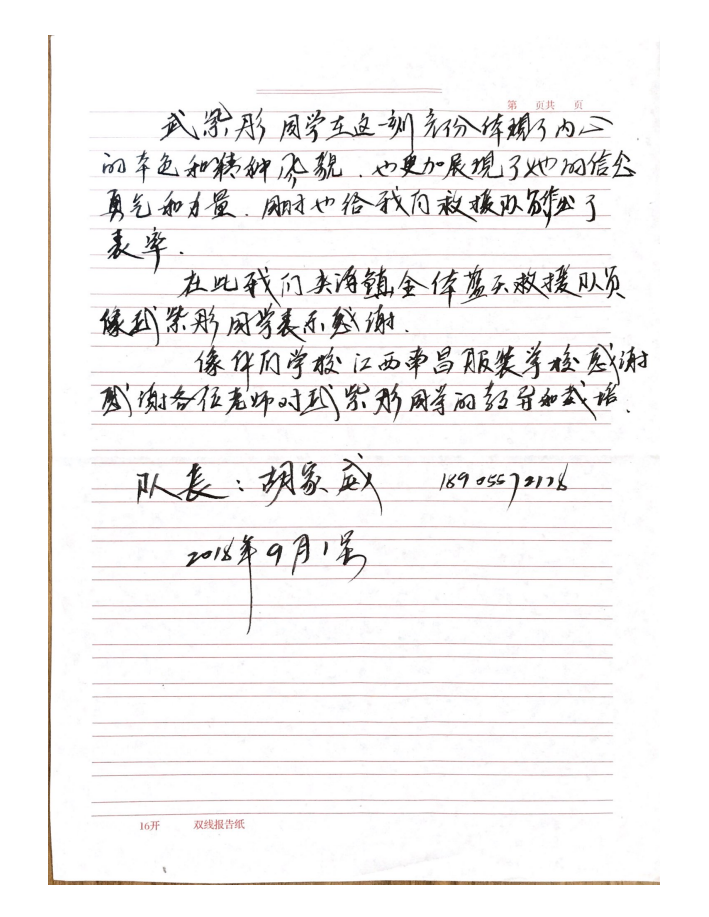 第 页共 页
武紫彤同学在这一刻充份体现了内心
的本色和精神风貌.也更加展现了她的信念
勇气和力量.同时也给我们救援队员作出了
表率.
在此我们夹沟镇全体蓝天救援队员
像武紫彤同学表示感谢.
像你们学校江西南昌服装学校感谢
感谢各位老师对武紫彤同学的教导和栽培.
队长:胡家威 18905572178
2018年9月1号
16开 双线报告纸